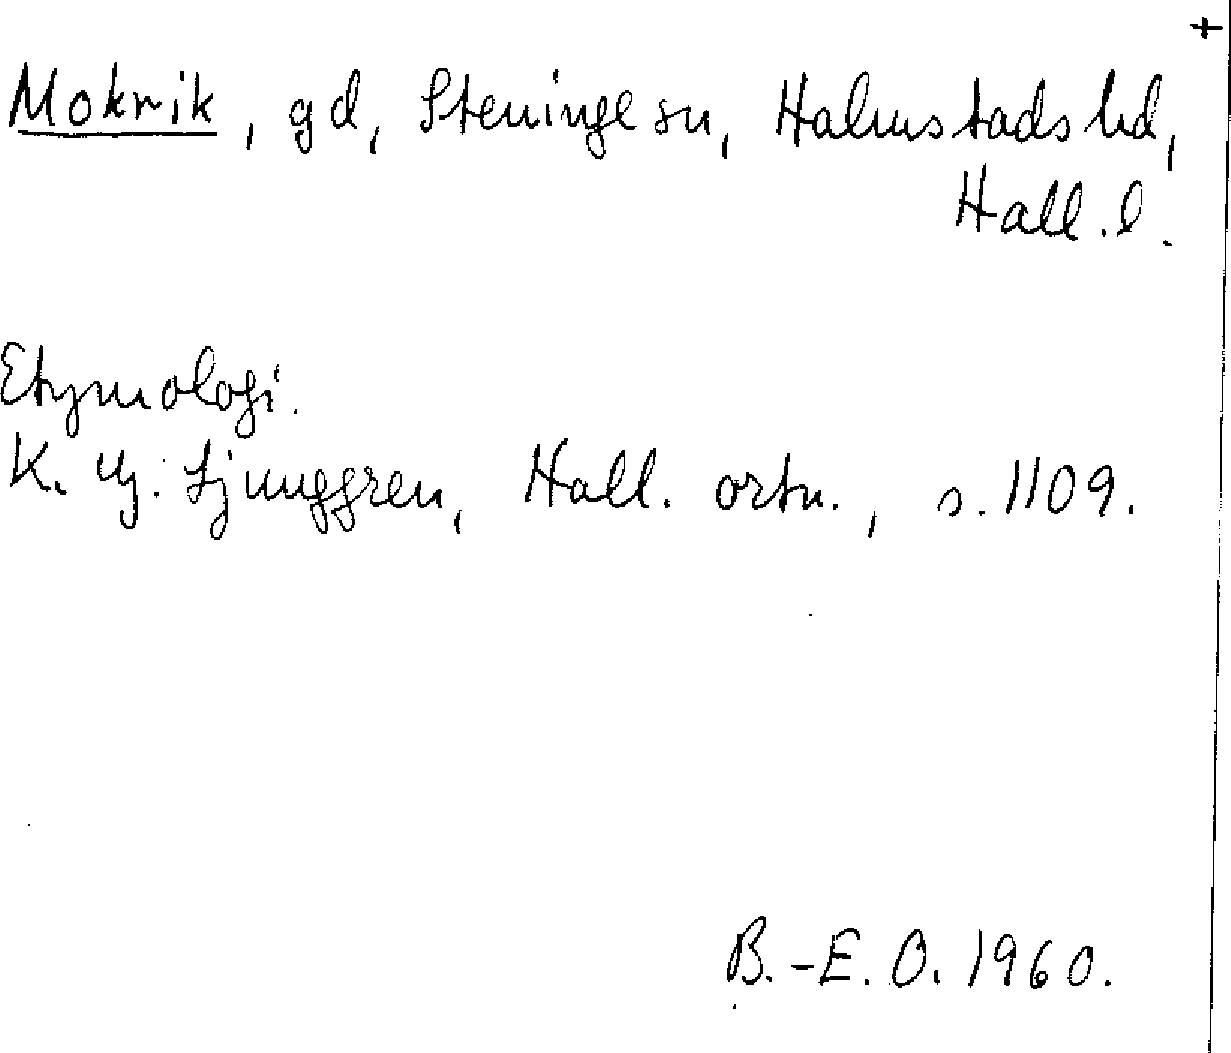 +
Mokrik, gd, Steninge sn, Halmstads hd,
Hall. l.
Etymologi.
K. G. Ljunggren, Hall. ortn., s. 1109.
B.-E. O. 1960.